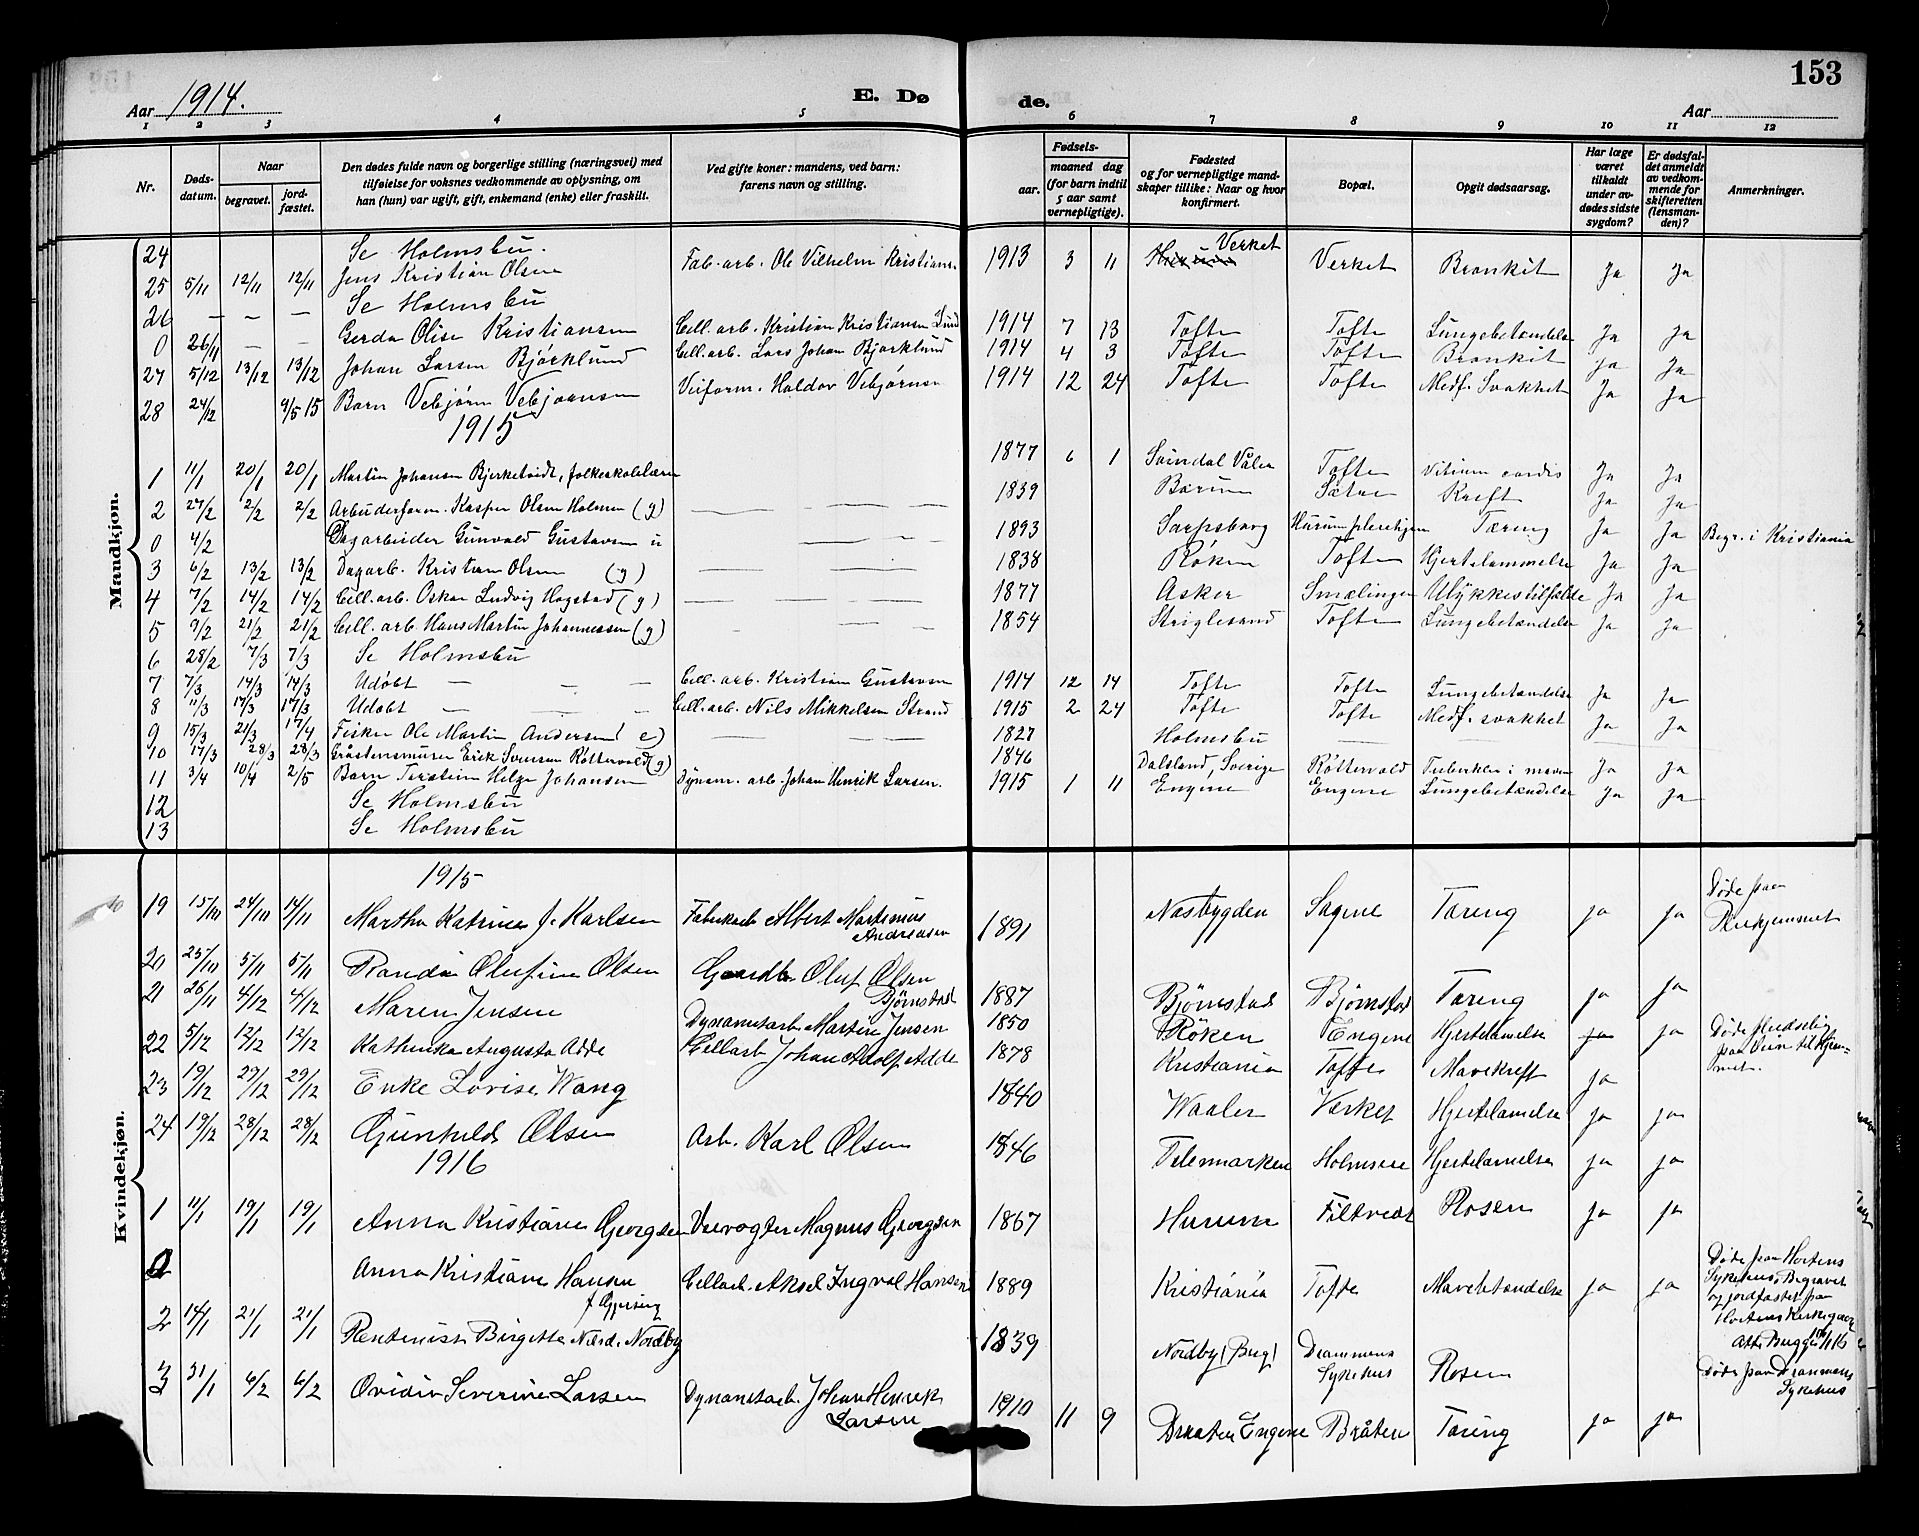 153
Aar 1914.
E. Dø
de.
Aar
1 2 3 4 5 6 7 8 9 10 11 12
Nr.
Dødsdatum.
Naar
begravet.
jordfæstet.
Den dødes fulde navn og borgerlige stilling (næringsvei) med tilføielse for voksnes vedkommende av oplysning, om han (hun) var ugift, gift, enkemand (enke) eller fraskilt.
Ved gifte koner: mandens, ved barn: farens navn og stilling.
Fødsels-
aar.
maaned dag (for barn indtil 5 aar samt vernepligtige).
Fødested og for vernepligtige mandskaper tillike: Naar og hvor konfirmert.
Bopæl.
Opgit dødsaarsag.
Har læge været tilkaldt under avdødes sidste sygdom?
Er dødsfaldet anmeldt av vedkommende for skifteretten (lensmanden)?
Anmerkninger.
Mandkjøn.
24 Se Holmsbu.
25 5/11 12/11 12/11 Jens Kristian Olsen Fab. arb. Ole Vilhelm Kristians. 1913 3 11 Verket Verket Bronkit Ja Ja
26 — — — Se Holmsbu
0 26/11 — — Gerda Olise Kristiansen Cell. arb. Kristian Kristiansen Lund 1914 7 13 Tofte Tofte Lungebetændelse Ja Ja
27 5/12 13/12 13/12 Johan Larsen Bjørklund Cell. arb. Lars Johan Bjørklund 1914 4 3 Tofte Tofte Bronkit Ja Ja
28 24/12 9/5 15 Barn Vebjørn Vebjørnsen Veiform. Haldor Vebjørnsen 1914 12 24 Tofte Tofte Medf. Svakhet Ja Ja
1915
1 11/1 20/1 20/1 Martin Johansen Bjerketvedt, folkeskolelærer 1877 6 1 Svindal Våler Tofte Vitium cordis Ja Ja
2 27/2 2/2 2/2 Arbeiderform. Kasper Olsen Holmen (g) — — — 1839 Bærum Sætre Kreft Ja Ja
0 4/2 Dagarbeider Gunvald Gustavsen u — — — 1893 Sarpsborg Hurum pleiehjem Tæring Ja Ja Begr. i Kristiania
3 6/2 13/2 13/2 Dagarb. Kristian Olsen (g) — — — 1838 Røken Tofte Hjertelammelse Ja Ja
4 7/2 14/2 14/2 Cell. arb. Oskar Ludvig Hagstad (g) — — — 1877 Asker Smælingen Ulykkestilfælde Ja Ja
5 9/2 21/2 21/2 Cell. arb. Hans Martin Johannessen (g) — — — 1854 Striglesand Tofte Lungebetændelse Ja Ja
6 28/2 7/3 7/3 Se Holmsbu
7 7/3 14/3 14/3 Udøbt — — — Cell. arb. Kristian Gustavsen 1914 12 14 Tofte Tofte Lungebetændelse Ja Ja
8 11/3 17/3 17/3 Udøbt — — — Cell. arb. Nils Mikkelsen Strand 1915 2 24 Tofte Tofte Medf. svakhet Ja Ja
9 15/3 21/3 17/4 Fisker Ole Martin Andersen (e) — — — 1827 Holmsbu —
10 17/3 28/3 28/3 Gråstensmurer Erik Svensen Røttervold (g) 1846 Dalsland, Sverige Røttervold Tuberkler i maven Ja Ja
11 3/4 10/4 2/5 Barn Torstein Helge Johansen Dynam. arb. Johan Henrik Larsen. 1915 1 11 Engene Engene Lungebetændelse Ja Ja
12 Se Holmsbu
13 Se Holmsbu
Kvindekjøn.
1915
19 15/10 24/10 14/11 Martha Katrine f. Karlsen Fabrikarb Albert Martinius Andreasen 1891 Næsbygden Sagene Tæring ja ja Døde paa Pleiehjemmet
20 25/10 5/11 5/11 Randi Olufine Olsen Gaardbr Oluf Olsen Bjørnstad 1887 Bjørnstad Bjørnstad Tæring ja ja
21 26/11 4/12 4/12 Maren Jensen Dynamitarb Martin Jensen 1850 Røken Engene Hjertelamelse ja ja Døde pludselig paa Veien til Hjemmet.
22 5/12 12/12 12/12 Kathinka Augusta Adde Cellarb Johan Adolf Adde 1878 Kristiania Tofte Mavekreft ja
23 19/12 29/12 29/12 Enke Lovise Wang 1840 Waaler Verket Hjertelamelse ja ja
24 19/12 28/12 28/12 Gunhild Olsen Arb. Karl Olsen 1846 Telemarken Holmsbu Hjertelamelse ja ja
1916
1 11/1 19/1 19/1 Anna Kristiane Georgsen Veivogter Magnus Georgsen 1867 Hurum Filtvedt Rosen ja ja
0 Anna Kristiane Hansen Cellarb. Aksel Ingval Hansen 1889 Kristiania Tofte Mavebetændelse ja ja Døde paa Hortens Sykehus, Begravet og jordfæstet paa Hortens Kirkegaard
2 14/1 21/1 21/1 Rentenist Birgette Næsd. Nordby 1839 Nordby (Bug) Drammens Sykehus Rosen Døde paa Drammens Sykehus
3 31/1 6/2 6/2 Ovidia Severine Larsen Dynamitarb Johan Henrik Larsen 1910 11 9 Braaten Engene Bråten Tæring ja ja